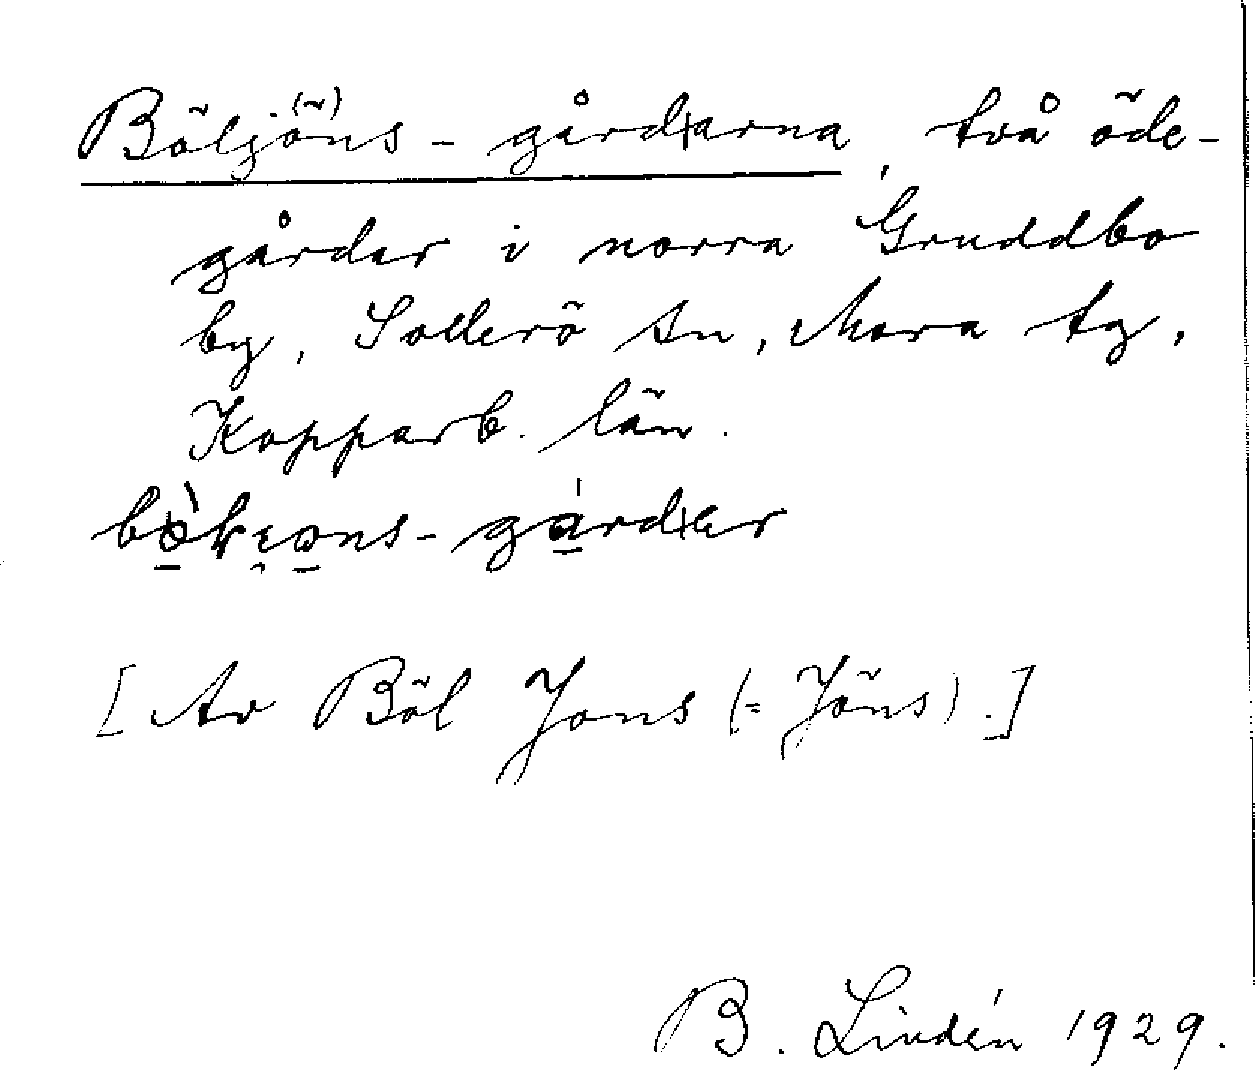 Böljöns-gårdarna, två öde-
gårdar i norra Gruddbo
by, Sollerö sn, Mora tg,
Kopparb. län.
[Av Böl Jons (= Jöns).]
B. Lindén 1929.